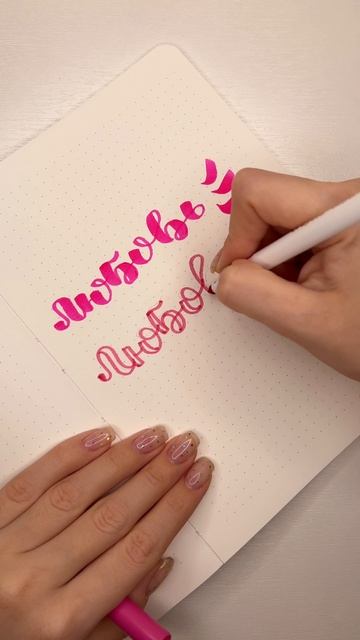 любовь
любов